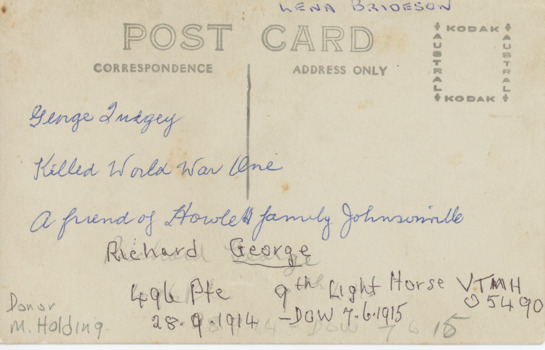 LENA BRIDESON
POST CARD
CORRESPONDENCE
ADDRESS ONLY
KODAK
AUSTRAL
AUSTRAL
KODAK
George Tudgey
Killed World War One
A friend of Howlett family Johnsonville
Richard George
496 Pte 9th Light Horse VTMH
28.9.1914 - DOW 7.6.1915
5490
Donor
M. Holding